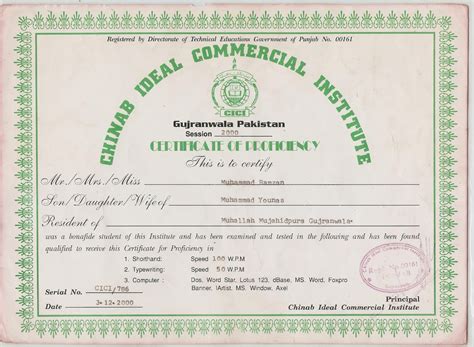 Registered by Directorate of Technical Educations Government of Punjab No. 00161
CHINAB IDEAL COMMERCIAL INSTITUTE
CICI
Gujranwala Pakistan
Session 2000
CERTIFICATE OF PROFICIENCY
This is to certify
Mr./Mrs./Miss Muhammad Ramzan
Son/Daughter/Wife of Muhammad Younas
Resident of Muhallah Mujahidpura Gujranwala
was a bonafide student of this Institute and has been examined and tested in the following and has been found
qualified to receive this Certificate for Proficiency in
1. Shorthand: Speed 100 W.P.M
2. Typewriting: Speed 50 W.P.M
3. Computer : Dos, Word Star, Lotus 123, dBase, MS. Word, Foxpro
Banner, !Artist, MS. Window, Axel
Serial No. CICI/786
Date 3-12-2000
Principal
Chinab Ideal Commercial Institute